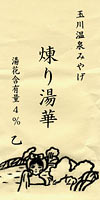 玉川温泉みやげ
煉り湯華
湯花含有量4%
乙